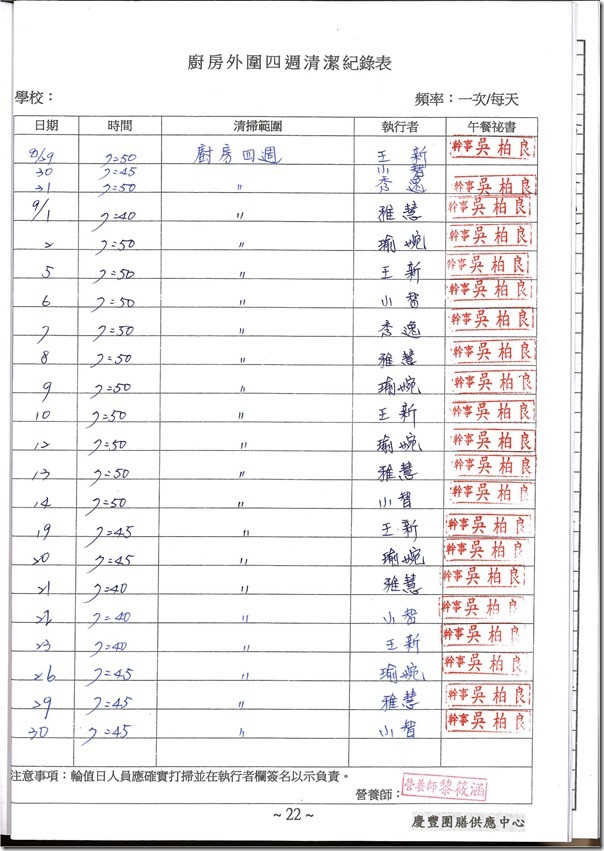 廚房外圍四週清潔紀錄表
學校： 頻率：一次/每天
日期 時間 清掃範圍 執行者 午餐祕書
8/29 7:50 廚房四週 王新 幹事 吳柏良
30 7:45 小智
31 7:50 〃 秀逸 幹事 吳柏良
9/1 7:40 〃 雅慧 幹事 吳柏良
2 7:50 〃 瑜婉 幹事 吳柏良
5 7:50 〃 王新 幹事 吳柏良
6 7:50 〃 小智 幹事 吳柏良
7 7:50 〃 秀逸 幹事 吳柏良
8 7:50 〃 雅慧 幹事 吳柏良
9 7:50 〃 瑜婉 幹事 吳柏良
10 7:50 〃 王新 幹事 吳柏良
12 7:50 〃 瑜婉 幹事 吳柏良
13 7:50 〃 雅慧 幹事 吳柏良
14 7:50 〃 小智 幹事 吳柏良
19 7:45 〃 王新 幹事 吳柏良
20 7:45 〃 瑜婉 幹事 吳柏良
21 7:40 〃 雅慧 幹事 吳柏良
22 7:40 〃 小智 幹事 吳柏良
23 7:40 〃 王新 幹事 吳柏良
26 7:45 〃 瑜婉 幹事 吳柏良
29 7:45 〃 雅慧 幹事 吳柏良
30 7:45 〃 小智 幹事 吳柏良
注意事項：輪值日人員應確實打掃並在執行者欄簽名以示負責。
營養師： 營養師黎筱涵
~ 22 ~
慶豐團膳供應中心